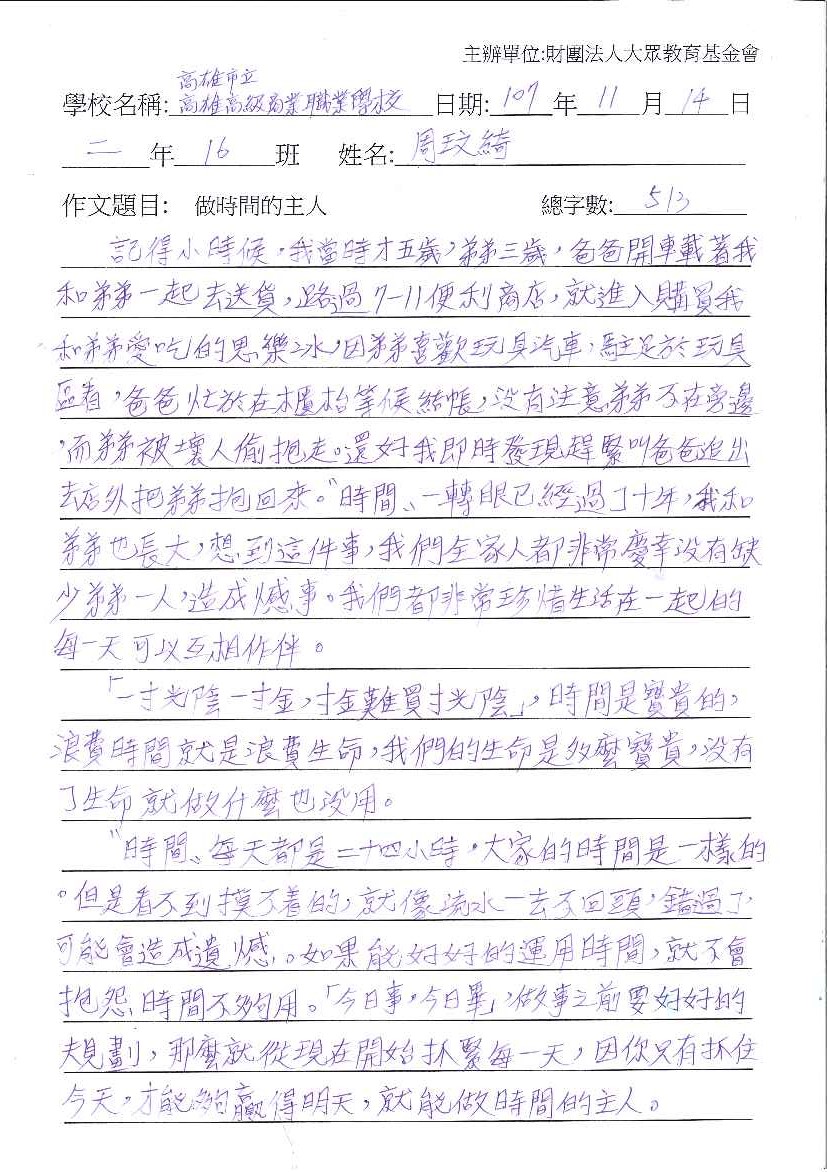 主辦單位:財團法人大眾教育基金會
高雄市立
學校名稱:高雄高級商業職業學校 日期:107年11月14日
二年16班 姓名:周玟綺
作文題目: 做時間的主人 總字數:513
記得小時候,我當時才五歲,弟弟三歲,爸爸開車載著我
和弟弟一起去送貨,路過7-11便利商店,就進入購買我
和弟弟愛吃的思樂冰,因弟弟喜歡玩具汽車,駐足於玩具
區看,爸爸忙於在櫃枱等候結帳,沒有注意弟弟不在旁邊
,而弟弟被壞人偷抱走。還好我即時發現趕緊叫爸爸追出
去店外把弟弟抱回來。〝時間〞一轉眼已經過了十年,我和
弟弟也長大,想到這件事,我們全家人都非常慶幸沒有缺
少弟弟一人,造成憾事。我們都非常珍惜生活在一起的
每一天可以互相作伴。
「一寸光陰一寸金,寸金難買寸光陰」,時間是寶貴的,
浪費時間就是浪費生命,我們的生命是多麼寶貴,沒有
了生命就做什麼也沒用。
〝時間〞每天都是二十四小時,大家的時間是一樣的
。但是看不到摸不着的,就像流水一去不回頭,錯過了
可能會造成遺憾。如果能好好的運用時間,就不會
抱怨時間不夠用。「今日事,今日畢」,做事之前要好好的
規劃,那麼就從現在開始抓緊每一天,因你只有抓住
今天,才能夠贏得明天,就能做時間的主人。